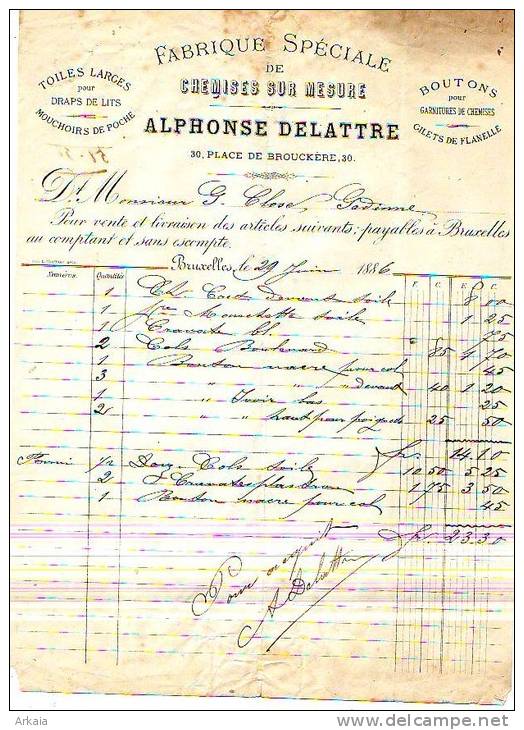 FABRIQUE SPÉCIALE
DE
CHEMISES SUR MESURE
TOILES LARGES
pour
DRAPS DE LITS
MOUCHOIRS DE POCHE
BOUTONS
pour
GARNITURES DE CHEMISES
GILETS DE FLANELLE
ALPHONSE DELATTRE
30, PLACE DE BROUCKÈRE, 30.
Dt. Monsieur G. Close,
Pour vente et livraison des articles suivants, payables à Bruxelles
au comptant et sans escompte.
Bruxelles, le 29 Juin 1886
Numéros Quantités F. C. F. C.
1 devant toile 8 00
1 toile 1 25
1 Cravate bl. 75
2 Cols Boulevard 85 1 70
1 Bouton nacre pour col 45
3 " " devant 40 1 20
1 " Ivoir bas 25
2 " haut pour poignets 25 50
frs 14.10
Fourni 1/2 Douz. Cols toile 10 50 5 25
2 Cravates plastron 1 75 3 50
1 Bouton nacre pour col 45
frs. 23.30
Pour acquit
A Delattre
Arkaia
www.delcampe.net